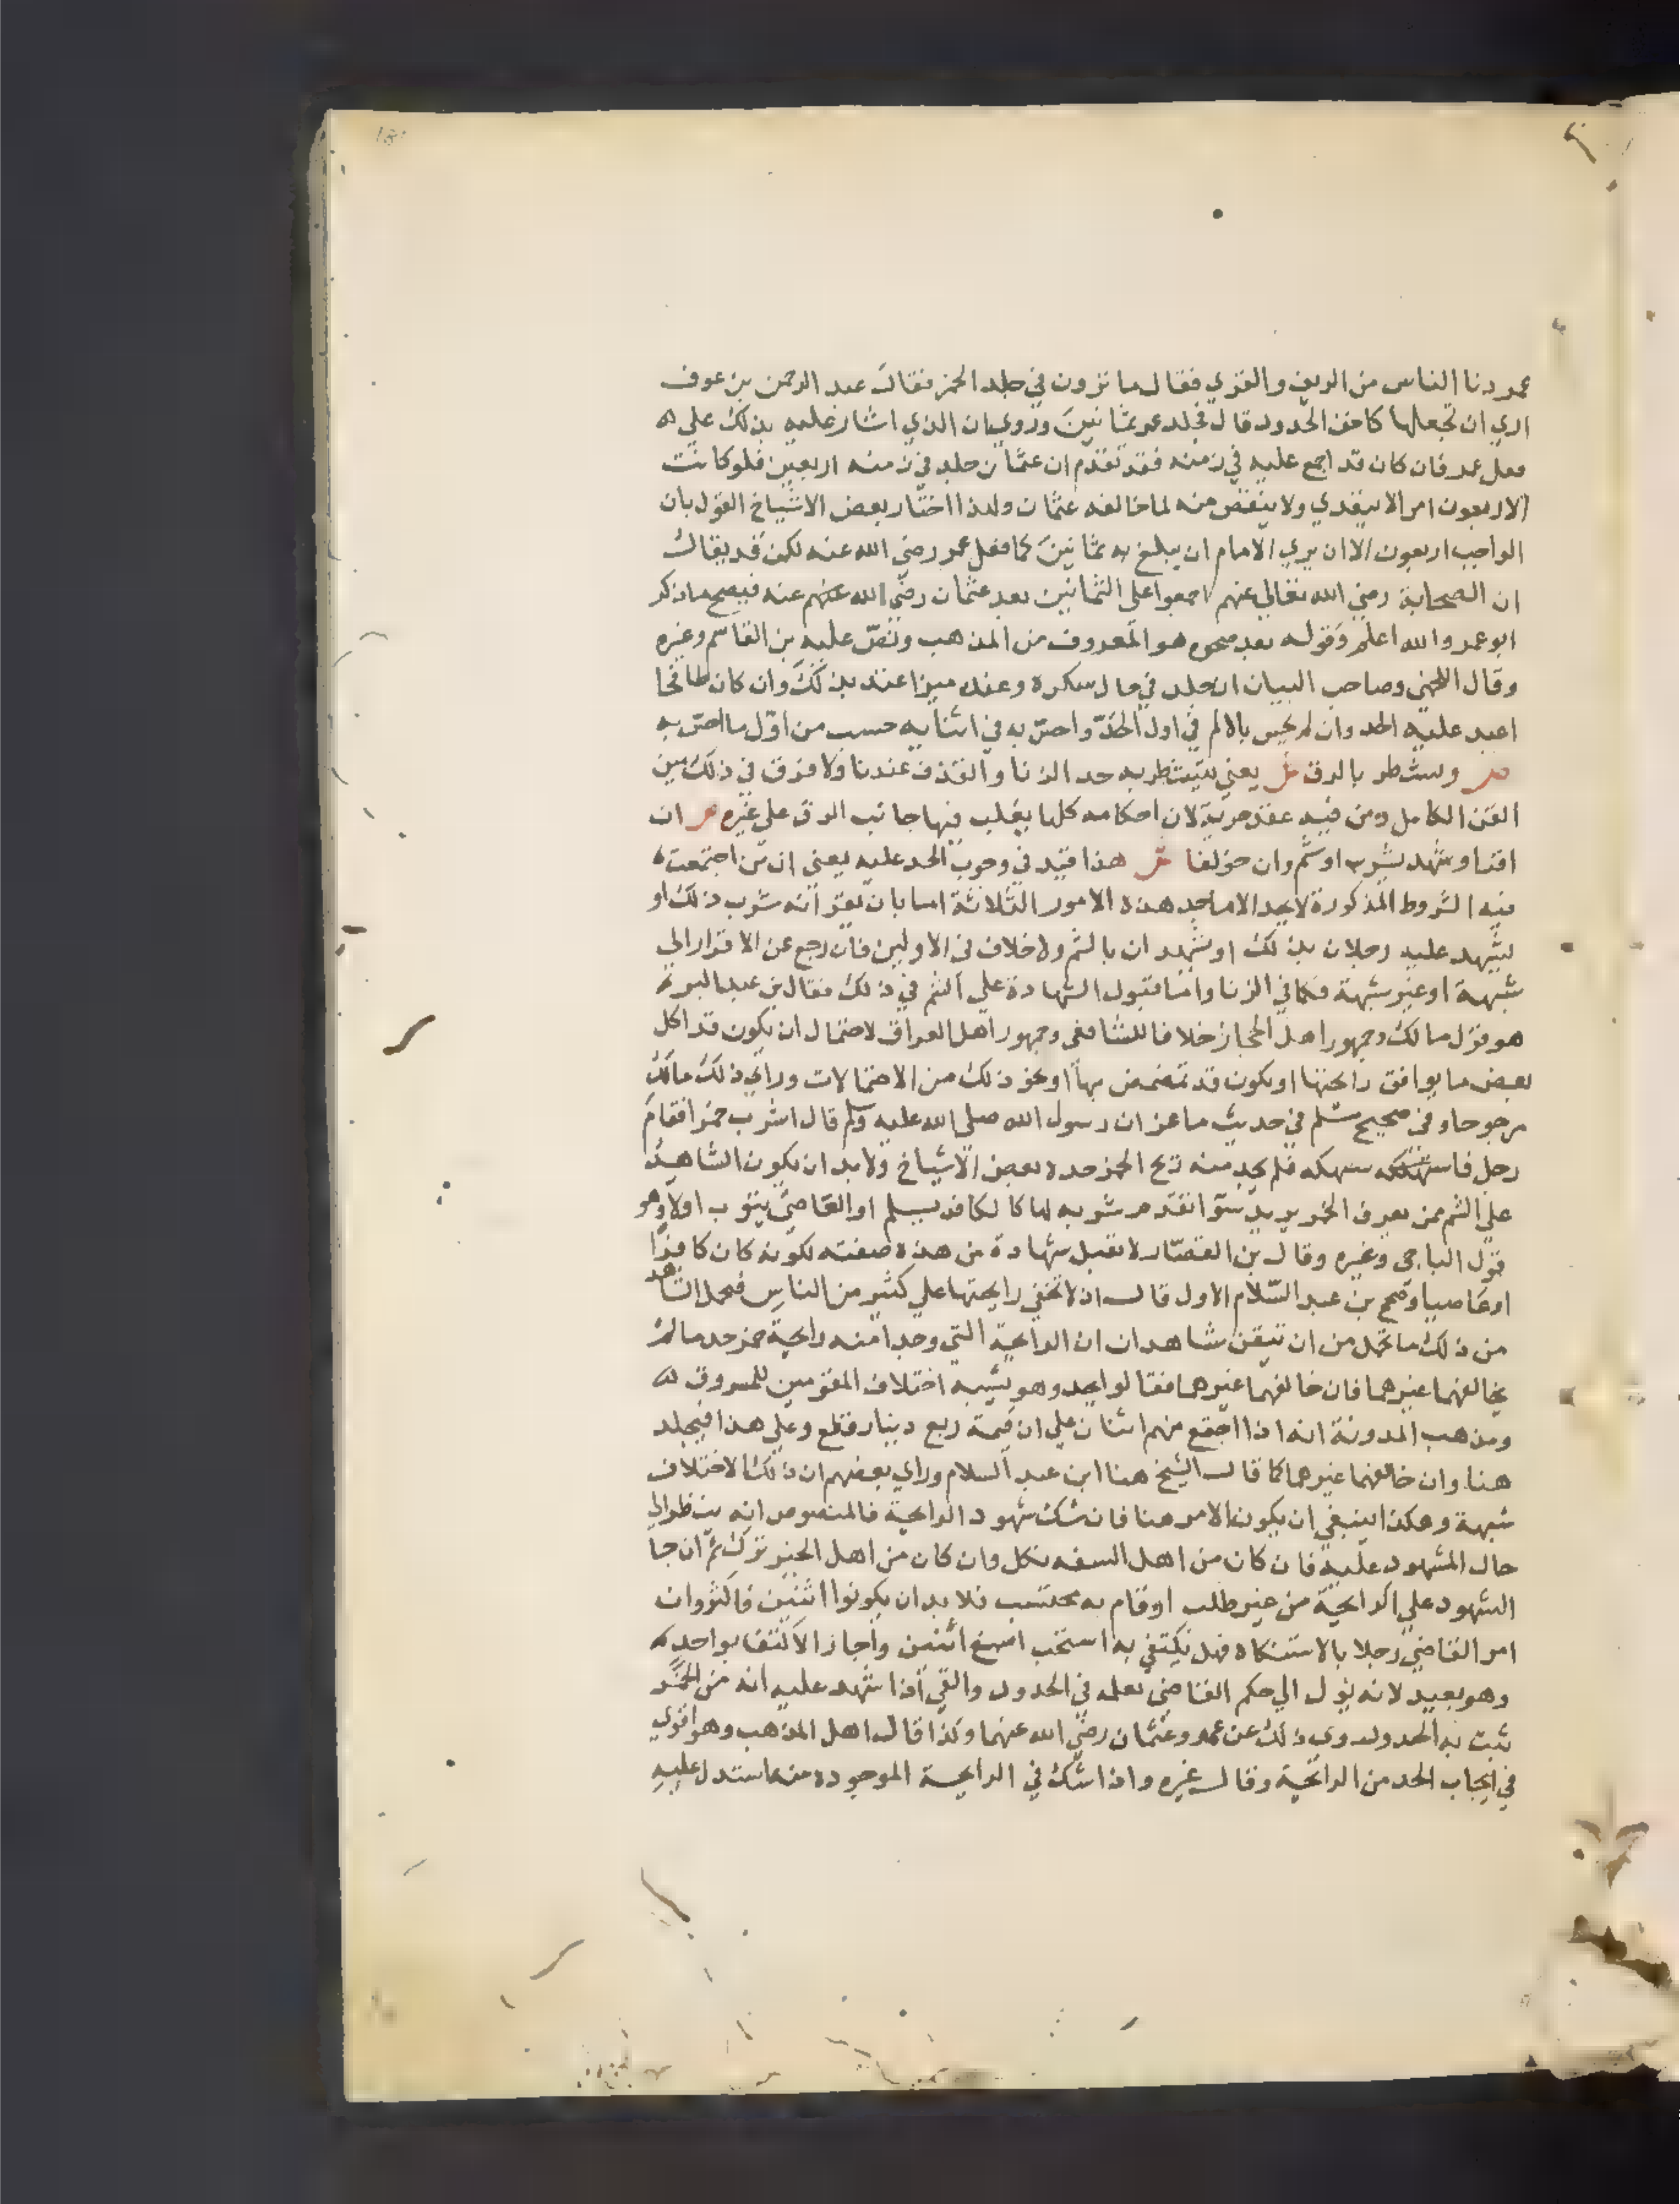 عمر دنا الناس من الريف والقري فقال ما ترون في جلد الخمر فقال عبد الرحمن بن عوف
اري ان تجعلها كاخف الحدود قال فجلد عمر ثمانين وروي ان الذي اشار عليه بذلك علي
فعل عمر فان كان قد اجمع عليه في زمنه فقد تقدم ان عثمان جلد في زمنه اربعين فلو كانت
الاربعون امرا لا يتعدي ولا ينقص منه لما خالفه عثمان ولهذا اختار بعض الاشياخ القول بان
الواجب اربعون الا ان يري الامام ان يبلغ به ثمانين كما فعل عمر رضي الله عنه لكن قد يقال
ان الصحابة رضي الله تعالي عنهم اجمعوا علي الثمانين بعد عثمان رضي الله عنهم عنه فيصح ما ذكر
ابو عمر والله اعلم وقوله بعد صحوه هو المعروف من المذهب ونص عليه بن القاسم وغيره
وقال اللخمي وصاحب البيان ان جلد في حال سكره وعنده ميزا عتد بذلك وان كان طافحا
اعيد عليه الحد وان لم يحس بالالم في اول الحد واحس به في اثنايه حسب من اول ما احس به
ص وسشطر بالرق ش يعني يتشطر به حد الزنا والقذف عندنا ولا فرق في ذلك بين
القن الكامل ومن فيه عقد حرية لان احكامه كلها يغلب فيها جانب الرق علي غيره ص ان
اقر او شهد بشرب او شم وان خولفا ش هذا قيد في وجوب الحد عليه يعني ان من اجتمعت
فيه الشروط المذكورة لا يحد الا باحد هذه الامور الثلاثة اما بان يقر انه شرب ذلك او
يشهد عليه رجلان بذلك او يشهدان بالشم ولا خلاف في الاولين فان رجع عن الاقرار الي
شبهة او غير شبهة فكما في الزنا واما قبول الشهادة علي الشم في ذلك فقال بن عبد البر
هو قول مالك وجمهور اهل الحجاز خلافا للشافعي وجمهور اهل العراق لاحتمال ان يكون قد اكل
بعض ما يوافق رائحتها او يكون قد تمضمض بها او نحو ذلك من الاحتمالات وراي ذلك مالك
مرجوحا وفي صحيح مسلم في حديث ماعز ان رسول الله صلي الله عليه وسلم قال اشرب خمرا فقام
رجل فاستنكهه فلم يجد منه ريح الخمر حده بعض الاشياخ ولا بد ان يكون الشاهد
علي الشم ممن يعرف الخمر يريد سوا تقدم شربه لها كالكافر يسلم او العاصي يتوب اولا وهو
قول الباجي وغيره وقال بن القصار لا تقبل شهادة من هذه صفته لكونه كان كافرا
او عاصيا وصحح بن عبد السلام الاول قال اذ لا تخفي رايحتها علي كثير من الناس فمحل الشاهد
من ذلك ما تحمل من ان تيقن شاهدان ان الرايحة التي وجدا منه رايحة خمر حد ما لم
يخالفهما غيرهما فان خالفهما غيرهما فقالوا يحد وهو يشبه اختلاف المقومين للمسروق
ومذهب المدونة انه اذا اجتمع منهم اثنان علي ان قيمته ربع دينار قطع وعلي هذا فيجلد
هنا وان خالفهما غيرهما كما قال الشيخ هنا ابن عبد السلام وراي بعضهم ان ذلك الاختلاف
شبهة وهكذا ينبغي ان يكون الامر هنا فان شك شهود الرايحة فالمنصوص انه ينظر الي
حال المشهود عليه فان كان من اهل السفه نكل وان كان من اهل الخير ترك ثم ان جا
الشهود علي الرايحة من غير طلب او قام به محتسب فلا بد ان يكونوا اثنين فاكثر وان
امر القاضي رجلا بالاستنكاه فهل يكتفي به استحب اصبغ اثنين واجاز الاكتفا بواحد
وهو بعيد لانه يؤل الي حكم القاضي بعلمه في الحدود والقي اذا شهد عليه انه من الخمر
ثبت به الحد وروي ذلك عن عمر وعثمان رضي الله عنهما وكذا قال اهل المذهب وهو اقوي
في ايجاب الحد من الرائحة وقال غيره واذا شك في الرايحة الموجودة منه استدل عليه